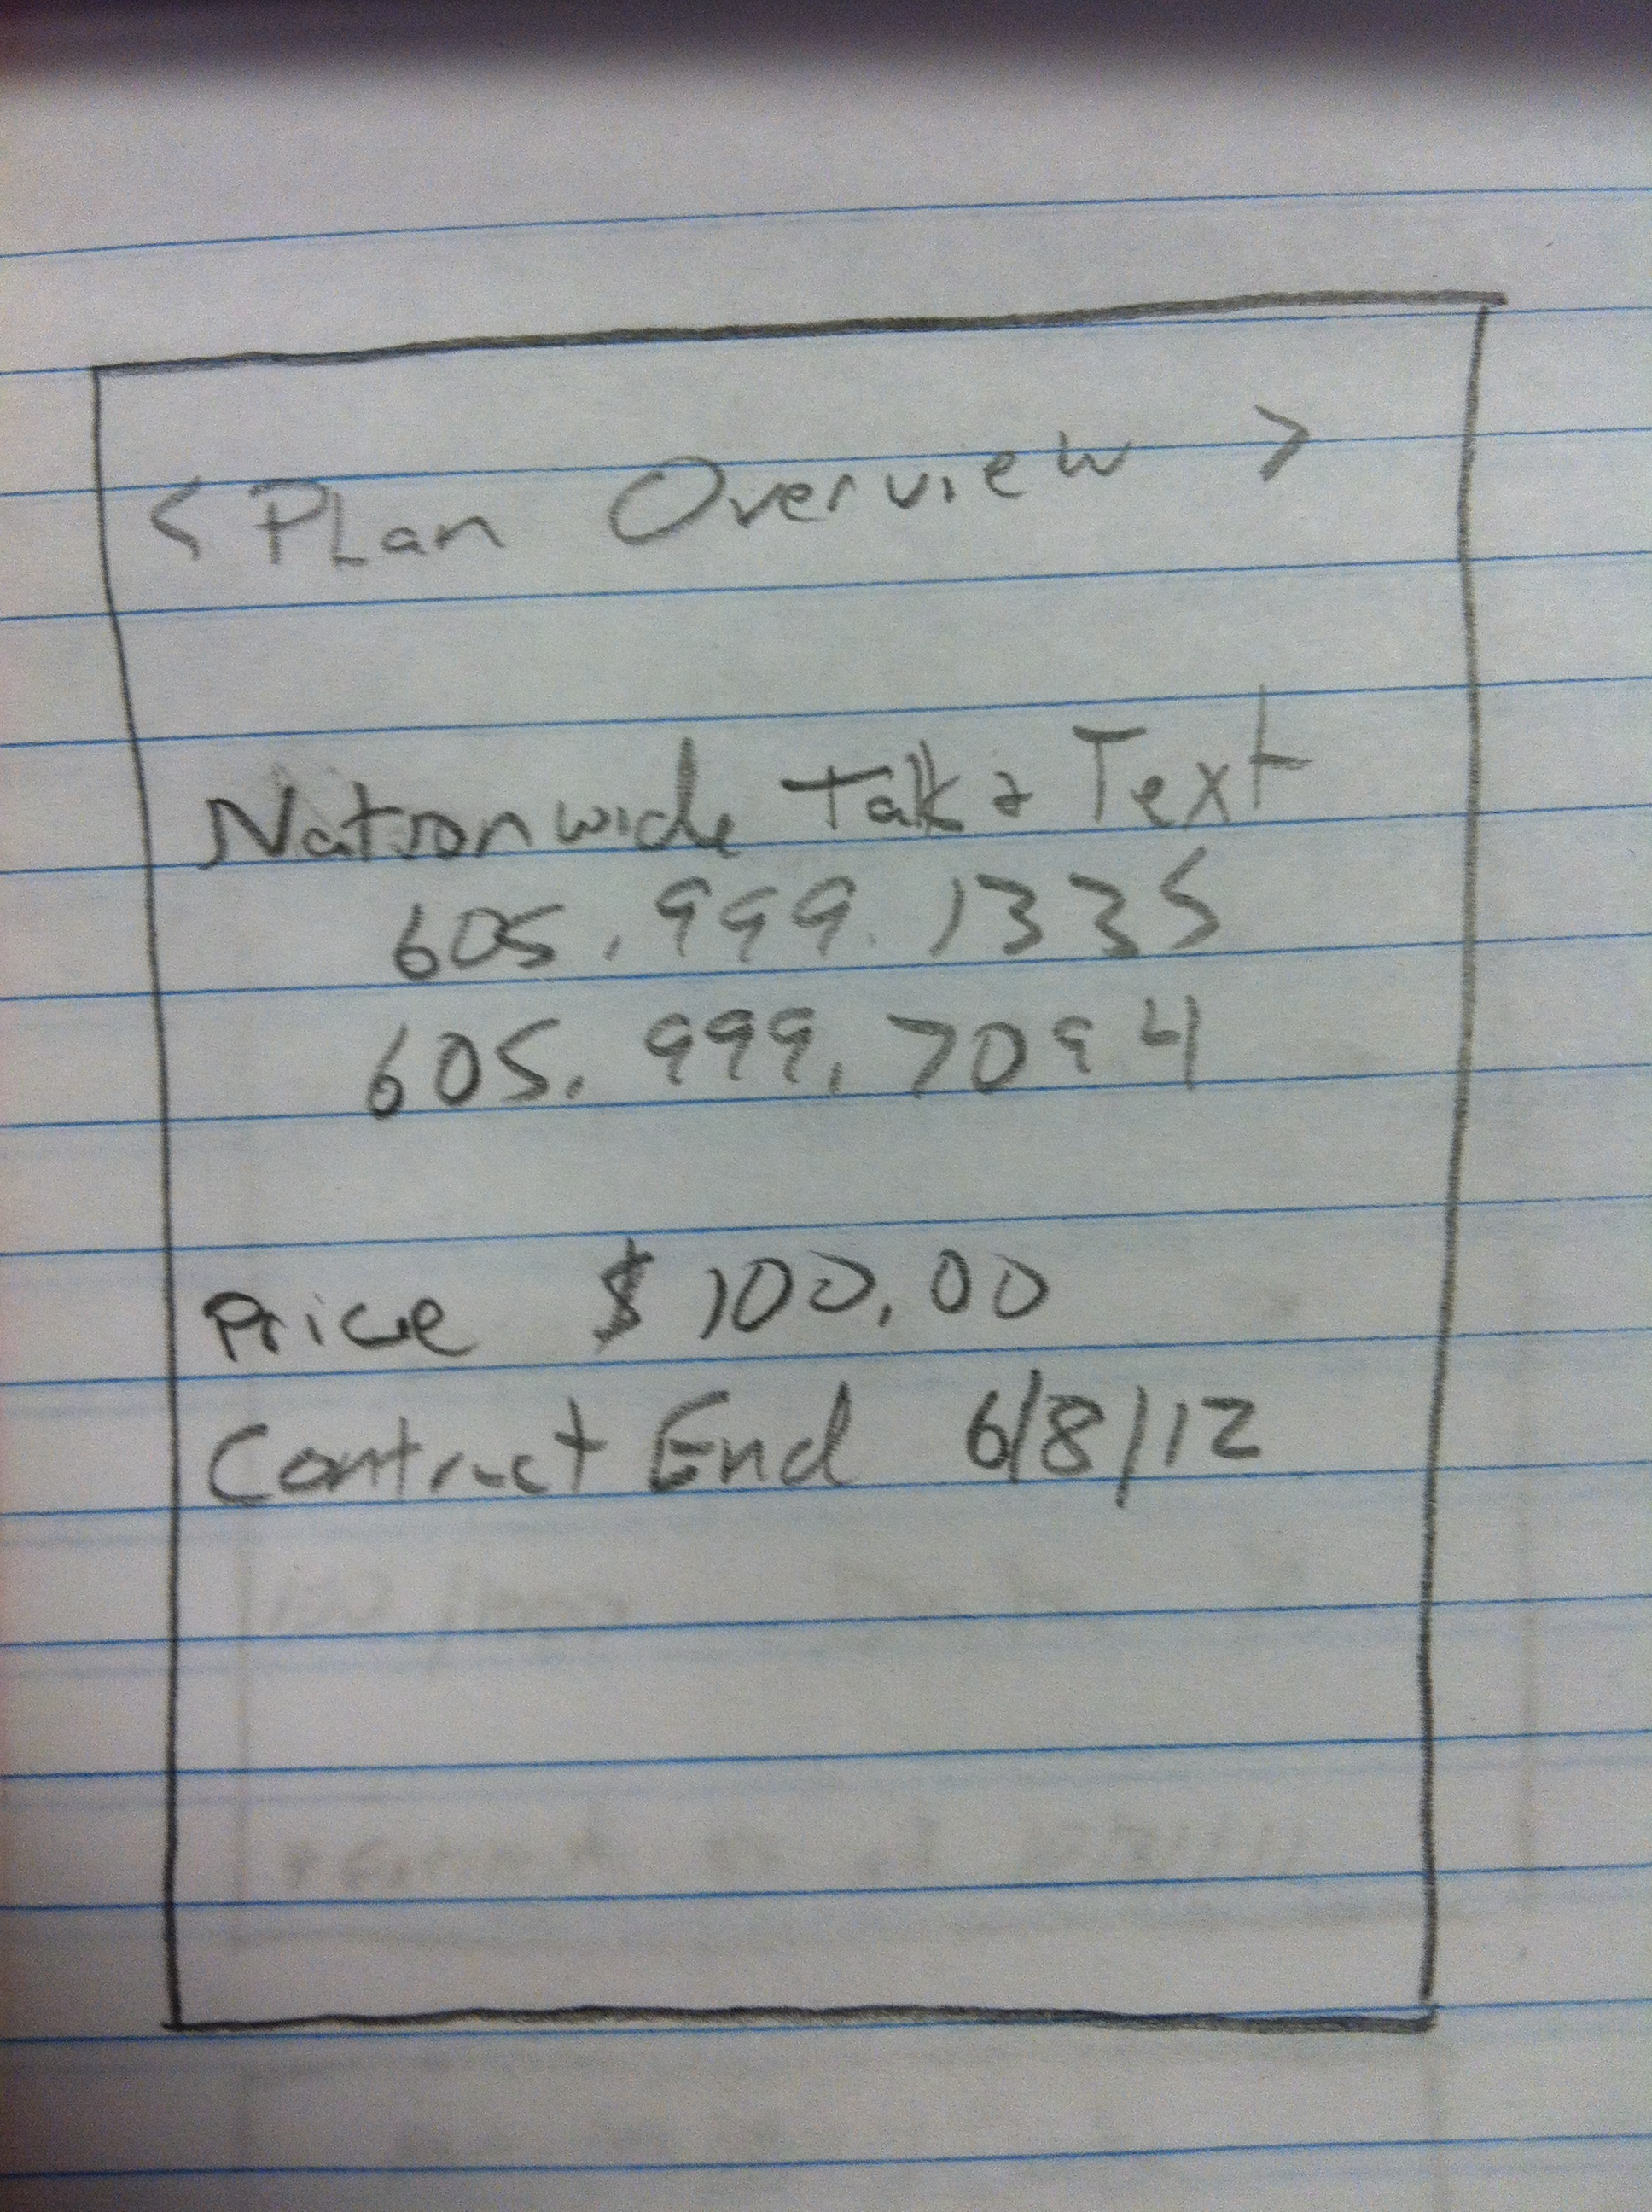 < PLan Overview >
Nationwide Talk & Text
605.999.1335
605.999.7094
Price $100.00
Contract End 6/8/12